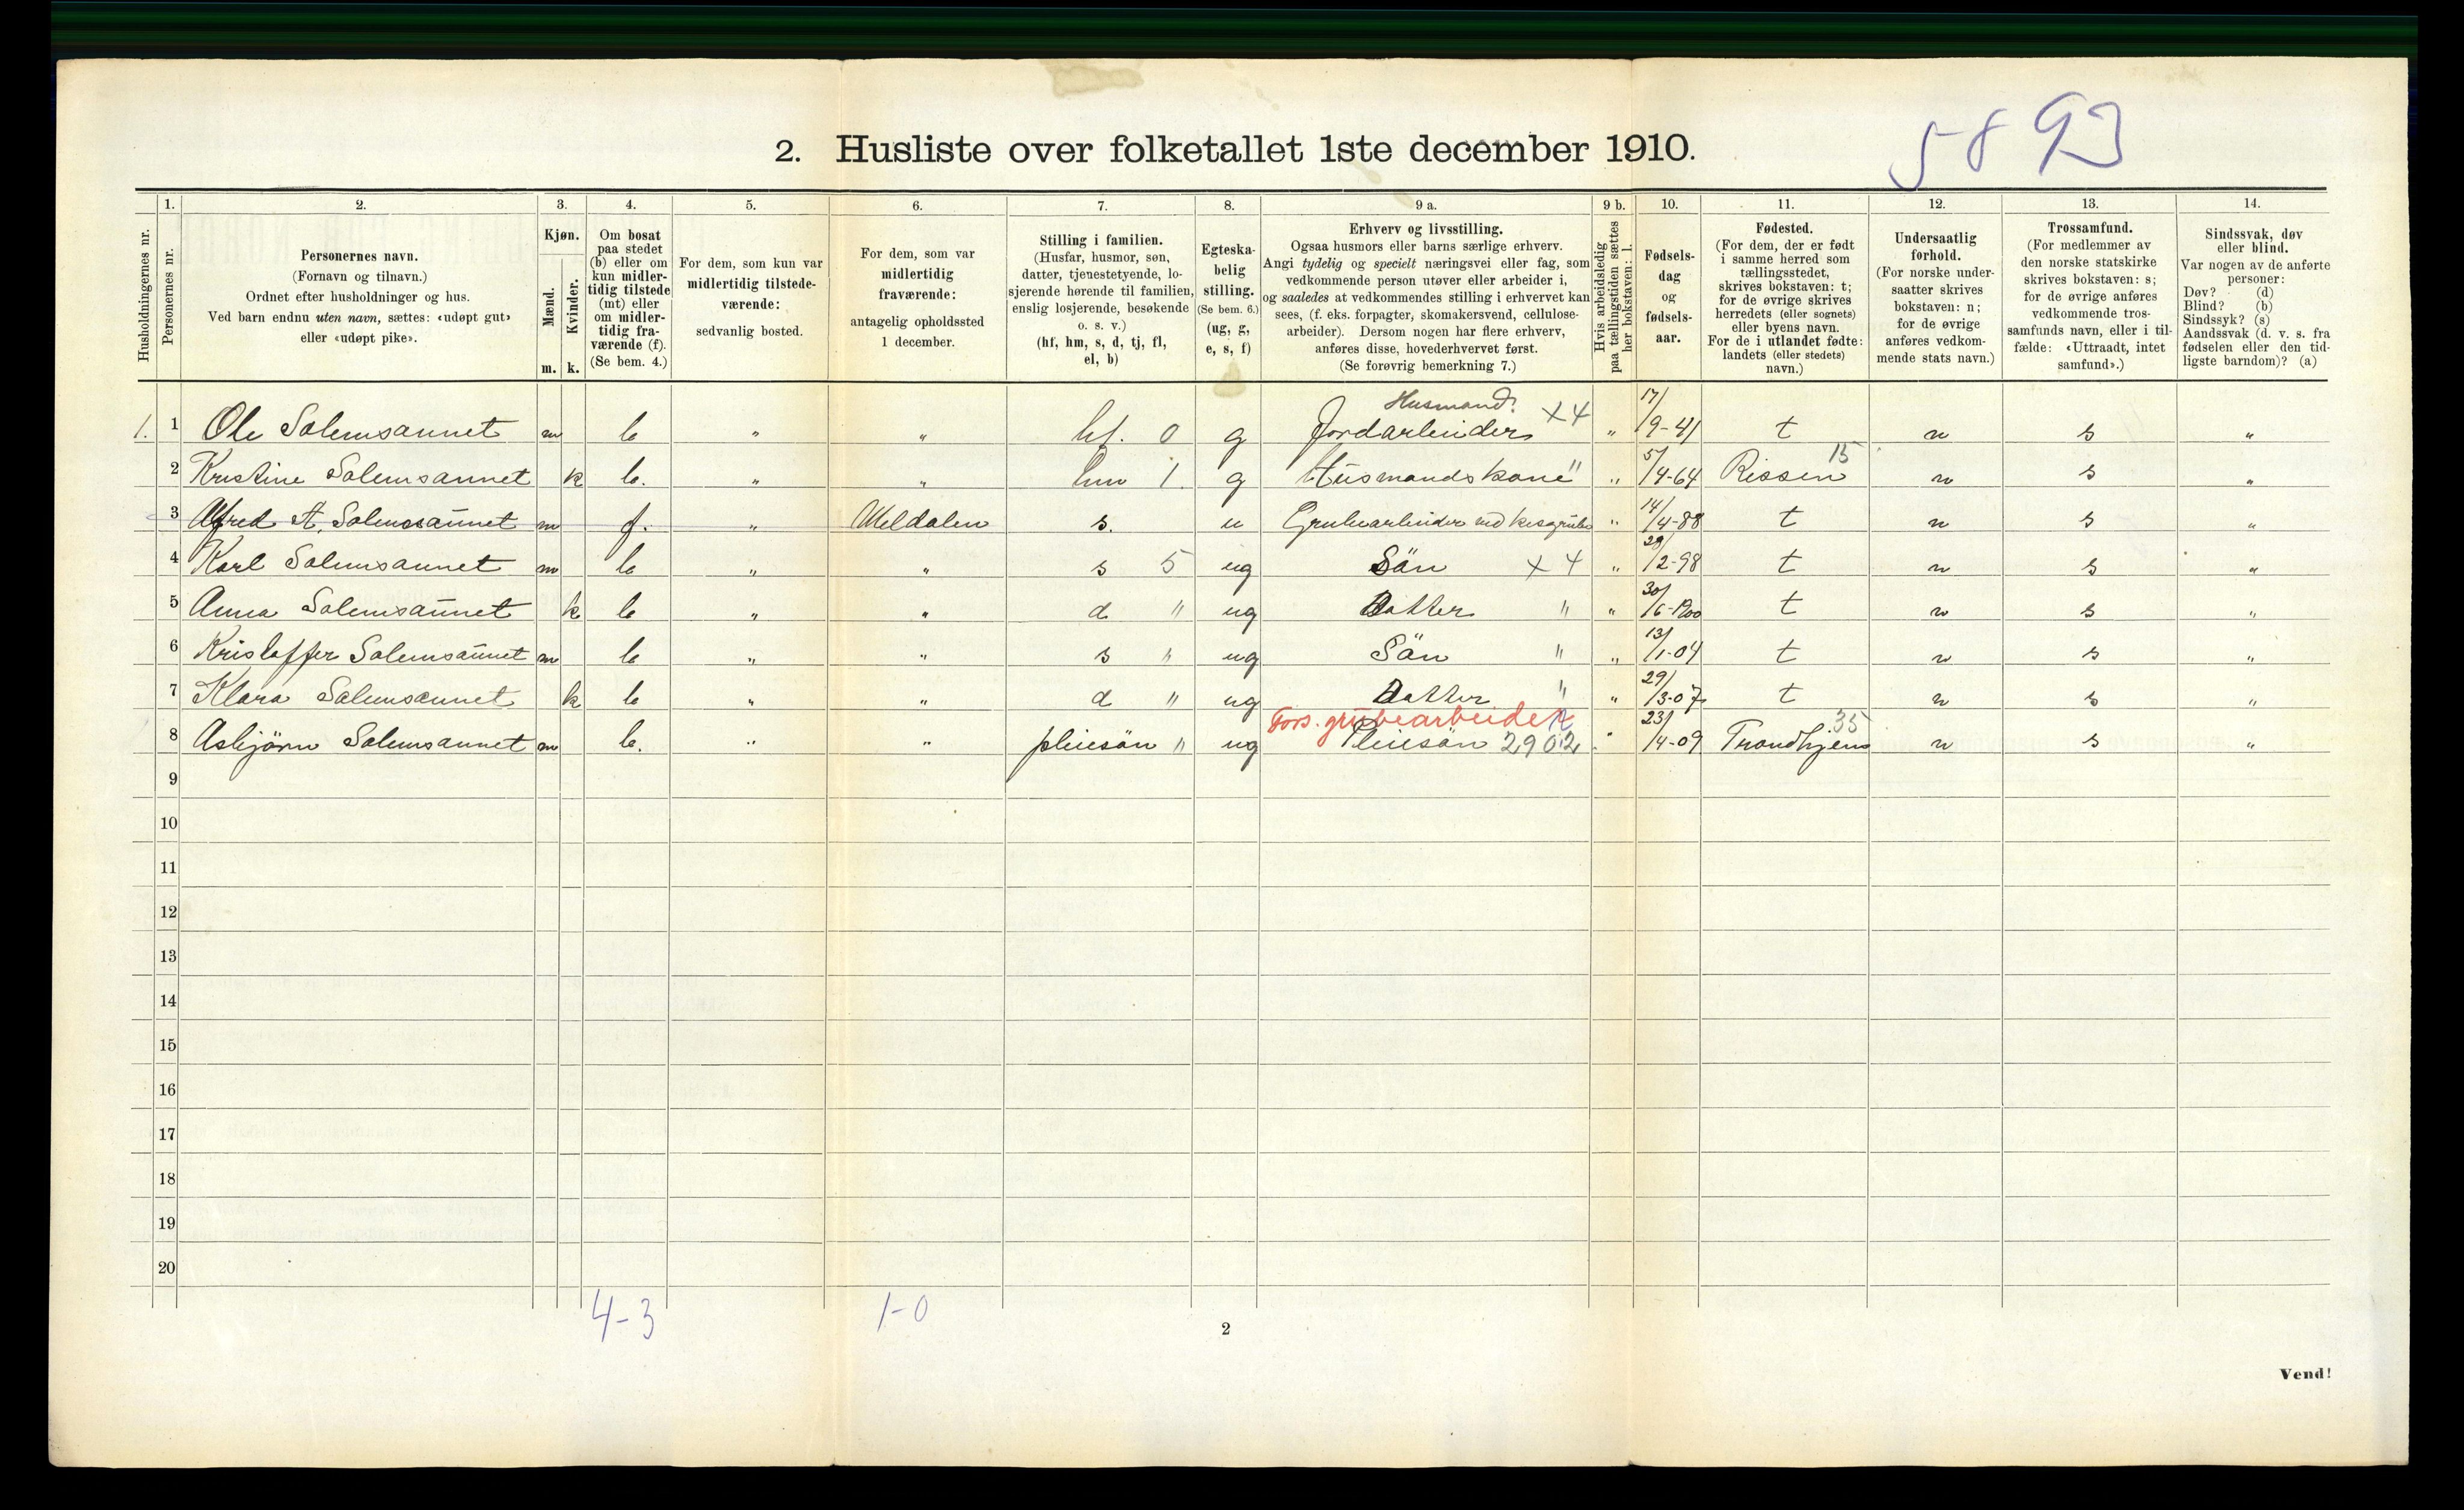 58 93
2. Husliste over folketallet 1ste december 1910.
1. 2. 3. 4. 5. 6. 7. 8. 9 a. 9 b. 10. 11. 12. 13. 14.
Husholdningernes nr.
Personernes nr.
Personernes navn.
(Fornavn og tilnavn.)
Ordnet efter husholdninger og hus.
Ved barn endnu uten navn, sættes: «udøpt gut»
eller «udøpt pike».
Kjøn.
Mænd.
Kvinder.
m. k.
Om bosat
paa stedet
(b) eller om
kun midler-
tidig tilstede
(mt) eller
om midler-
tidig fra-
værende (f).
(Se bem. 4.)
For dem, som kun var
midlertidig tilstede-
værende:
sedvanlig bosted.
For dem, som var
midlertidig
fraværende:
antagelig opholdssted
1 december.
Stilling i familien.
(Husfar, husmor, søn,
datter, tjenestetyende, lo-
sjerende hørende til familien,
enslig losjerende, besøkende
o. s. v.)
(hf, hm, s, d, tj, fl,
el, b)
Egteska-
belig
stilling.
(Se bem. 6.)
(ug, g,
e, s, f)
Erhverv og livsstilling.
Ogsaa husmors eller barns særlige erhverv.
Angi tydelig og specielt næringsvei eller fag, som
vedkommende person utøver eller arbeider i,
og saaledes at vedkommendes stilling i erhvervet kan
sees, (f. eks. forpagter, skomakersvend, cellulose-
arbeider). Dersom nogen har flere erhverv,
anføres disse, hovederhvervet først.
(Se forøvrig bemerkning 7.)
Hvis arbeidsledig
paa tællingstiden sættes
her bokstaven: l.
Fødsels-
dag
og
fødsels-
aar.
Fødested.
(For dem, der er født
i samme herred som
tællingsstedet,
skrives bokstaven: t;
for de øvrige skrives
herredets (eller sognets)
eller byens navn.
For de i utlandet fødte:
landets (eller stedets)
navn.)
Undersaatlig
forhold.
(For norske under-
saatter skrives
bokstaven: n;
for de øvrige
anføres vedkom-
mende stats navn.)
Trossamfund.
(For medlemmer av
den norske statskirke
skrives bokstaven: s;
for de øvrige anføres
vedkommende tros-
samfunds navn, eller i til-
fælde: «Uttraadt, intet
samfund».)
Sindssvak, døv
eller blind.
Var nogen av de anførte
personer:
Døv? (d)
Blind? (b)
Sindssyk? (s)
Aandssvak (d. v. s. fra
fødselen eller den tid-
ligste barndom)? (a)
Husmand. x4
1. 1 Ole Solemsaunet m b " " hf. 0 g Jordarbeider " 17/9-41 t n s "
2 Kristine Solemsaunet k b. " " hm 1. g Husmandskone " " 5/4-64 Rissen 15 n s "
3 Alfred A. Solemsaunet m f. " Meldalen s. u Grubearbeider ved kisgrube " 14/4-88 t n s "
4 Karl Solemsaunet m b " " s 5 ug Sön x 4 " 28/2-98 t n s "
5 Anna Solemsaunet k b " " d " ug Datter " " 30/6-1900 t n s "
6 Kristoffer Solemsaunet m b " " s " ug Sön " " 13/1-04 t n s "
7 Klara Solemsaunet k b " " d " ug Datter " " 29/3-07 t n s "
Fors. grubearbeider
8 Asbjörn Solemsaunet m b. " " pleiesön " ug Pleiesön 2902 " 23/4-09 Trondhjem 35 n s "
9
10
11
12
13
14
15
16
17
18
19
20
4-3 1-0
2
Vend!